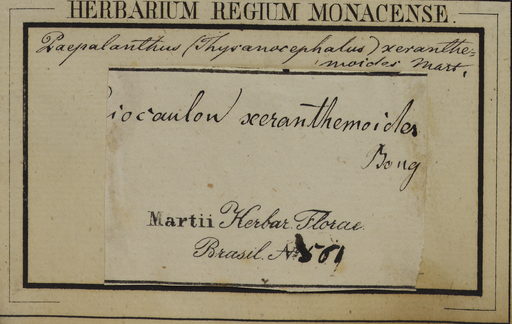 HERBARIUM REGIUM MONACENSE.
Paepalanthus (Thysanocephalus) xeranthe=
moides Mart.
riocaulon xeranthemoides
Bong
Martii Herbar. Florae
Brasil. No 561